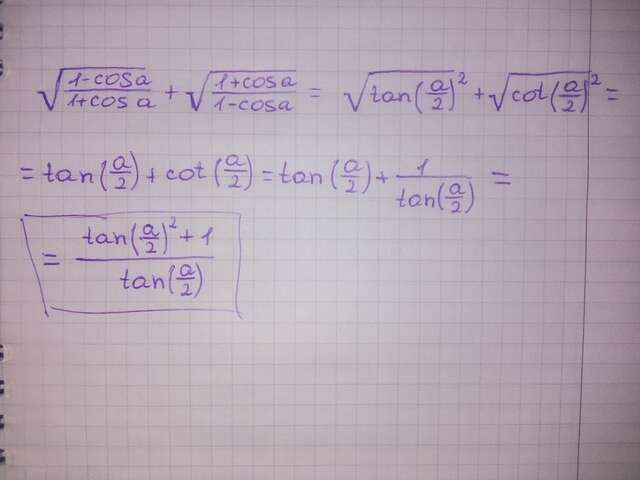 √((1-cosa)/(1+cosa)) + √((1+cosa)/(1-cosa)) = √(tan(a/2)²) + √(cot(a/2)²) =
= tan(a/2) + cot(a/2) = tan(a/2) + 1/tan(a/2) =
= (tan(a/2)² + 1)/tan(a/2)